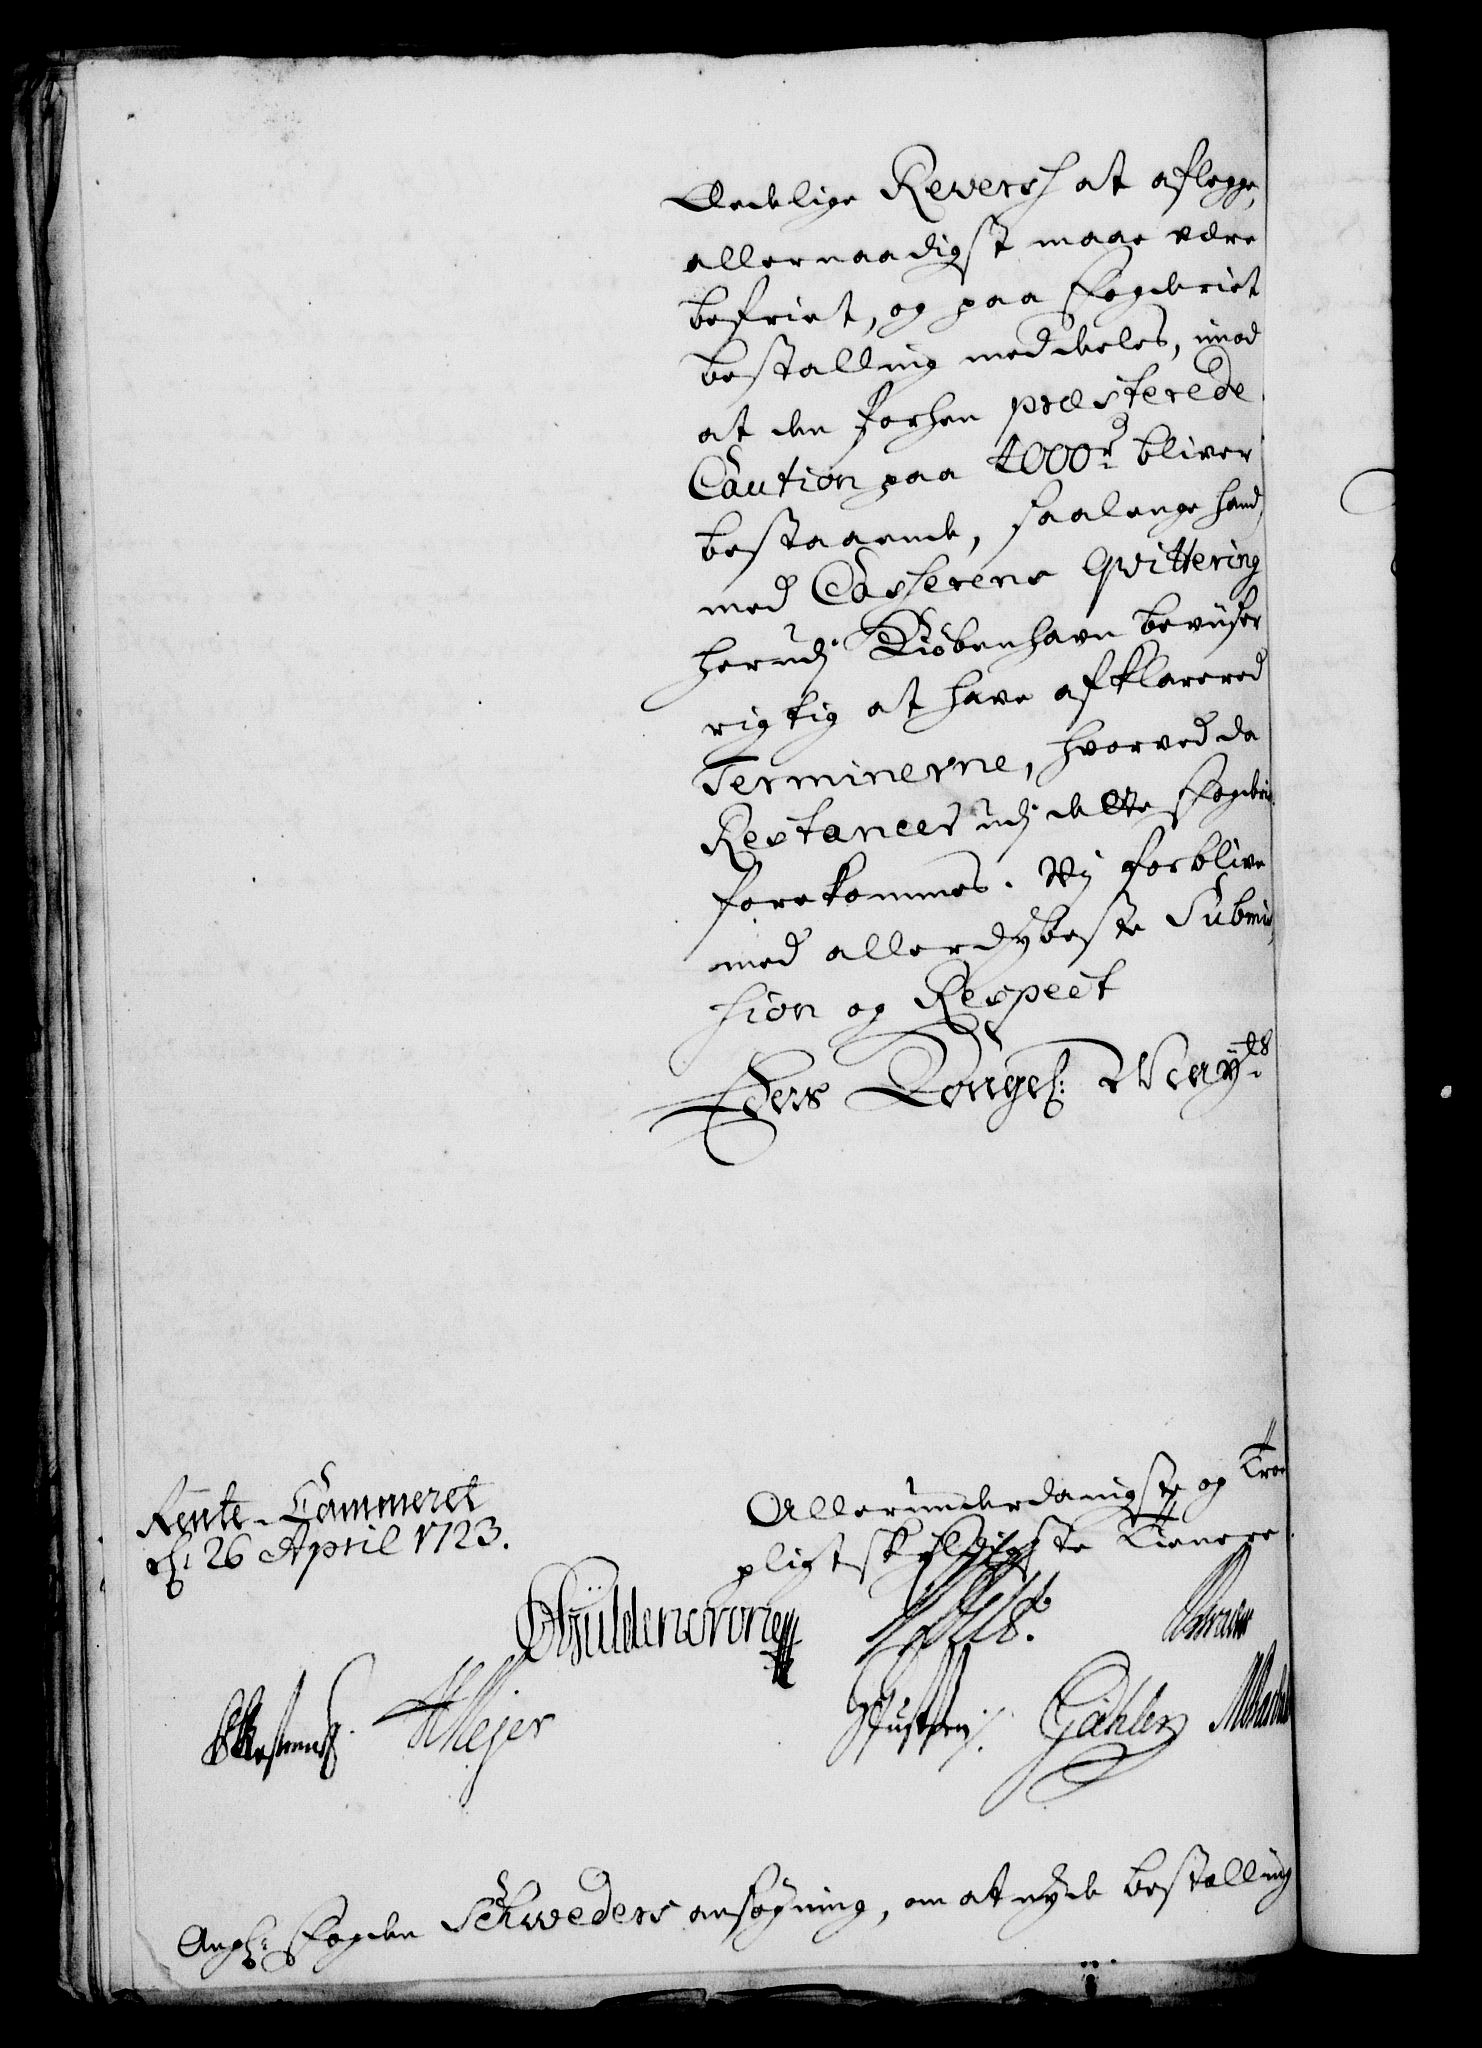 Eedelige Reversh at aflegge,
allernaadigst maae være
befriet, og paa Fogderiet
bestalling meddeeles, imod
at den forhen præsterede
Caution paa 4000 rd bliver
bestaaende, saalenge hand
med Casherens Qvittering
herudj Kiøbenhavn beviiser
rigtig at have afklarered
Terminerne, hvorved da
Restancer udj dette Fogderie
forekommes. Wij forblive
med allerdybeste Submis,
sion og Respect
Eders Kongel: May:ts
Allerunderdanigste og Troe
pligtskyldigste Tienere.
Rente-Cammeret
d: 26 April 1723.
Güldencrone
Mejer
Gähler
Angl: Fogden Schweders ansøgning, om at nyde bestalling